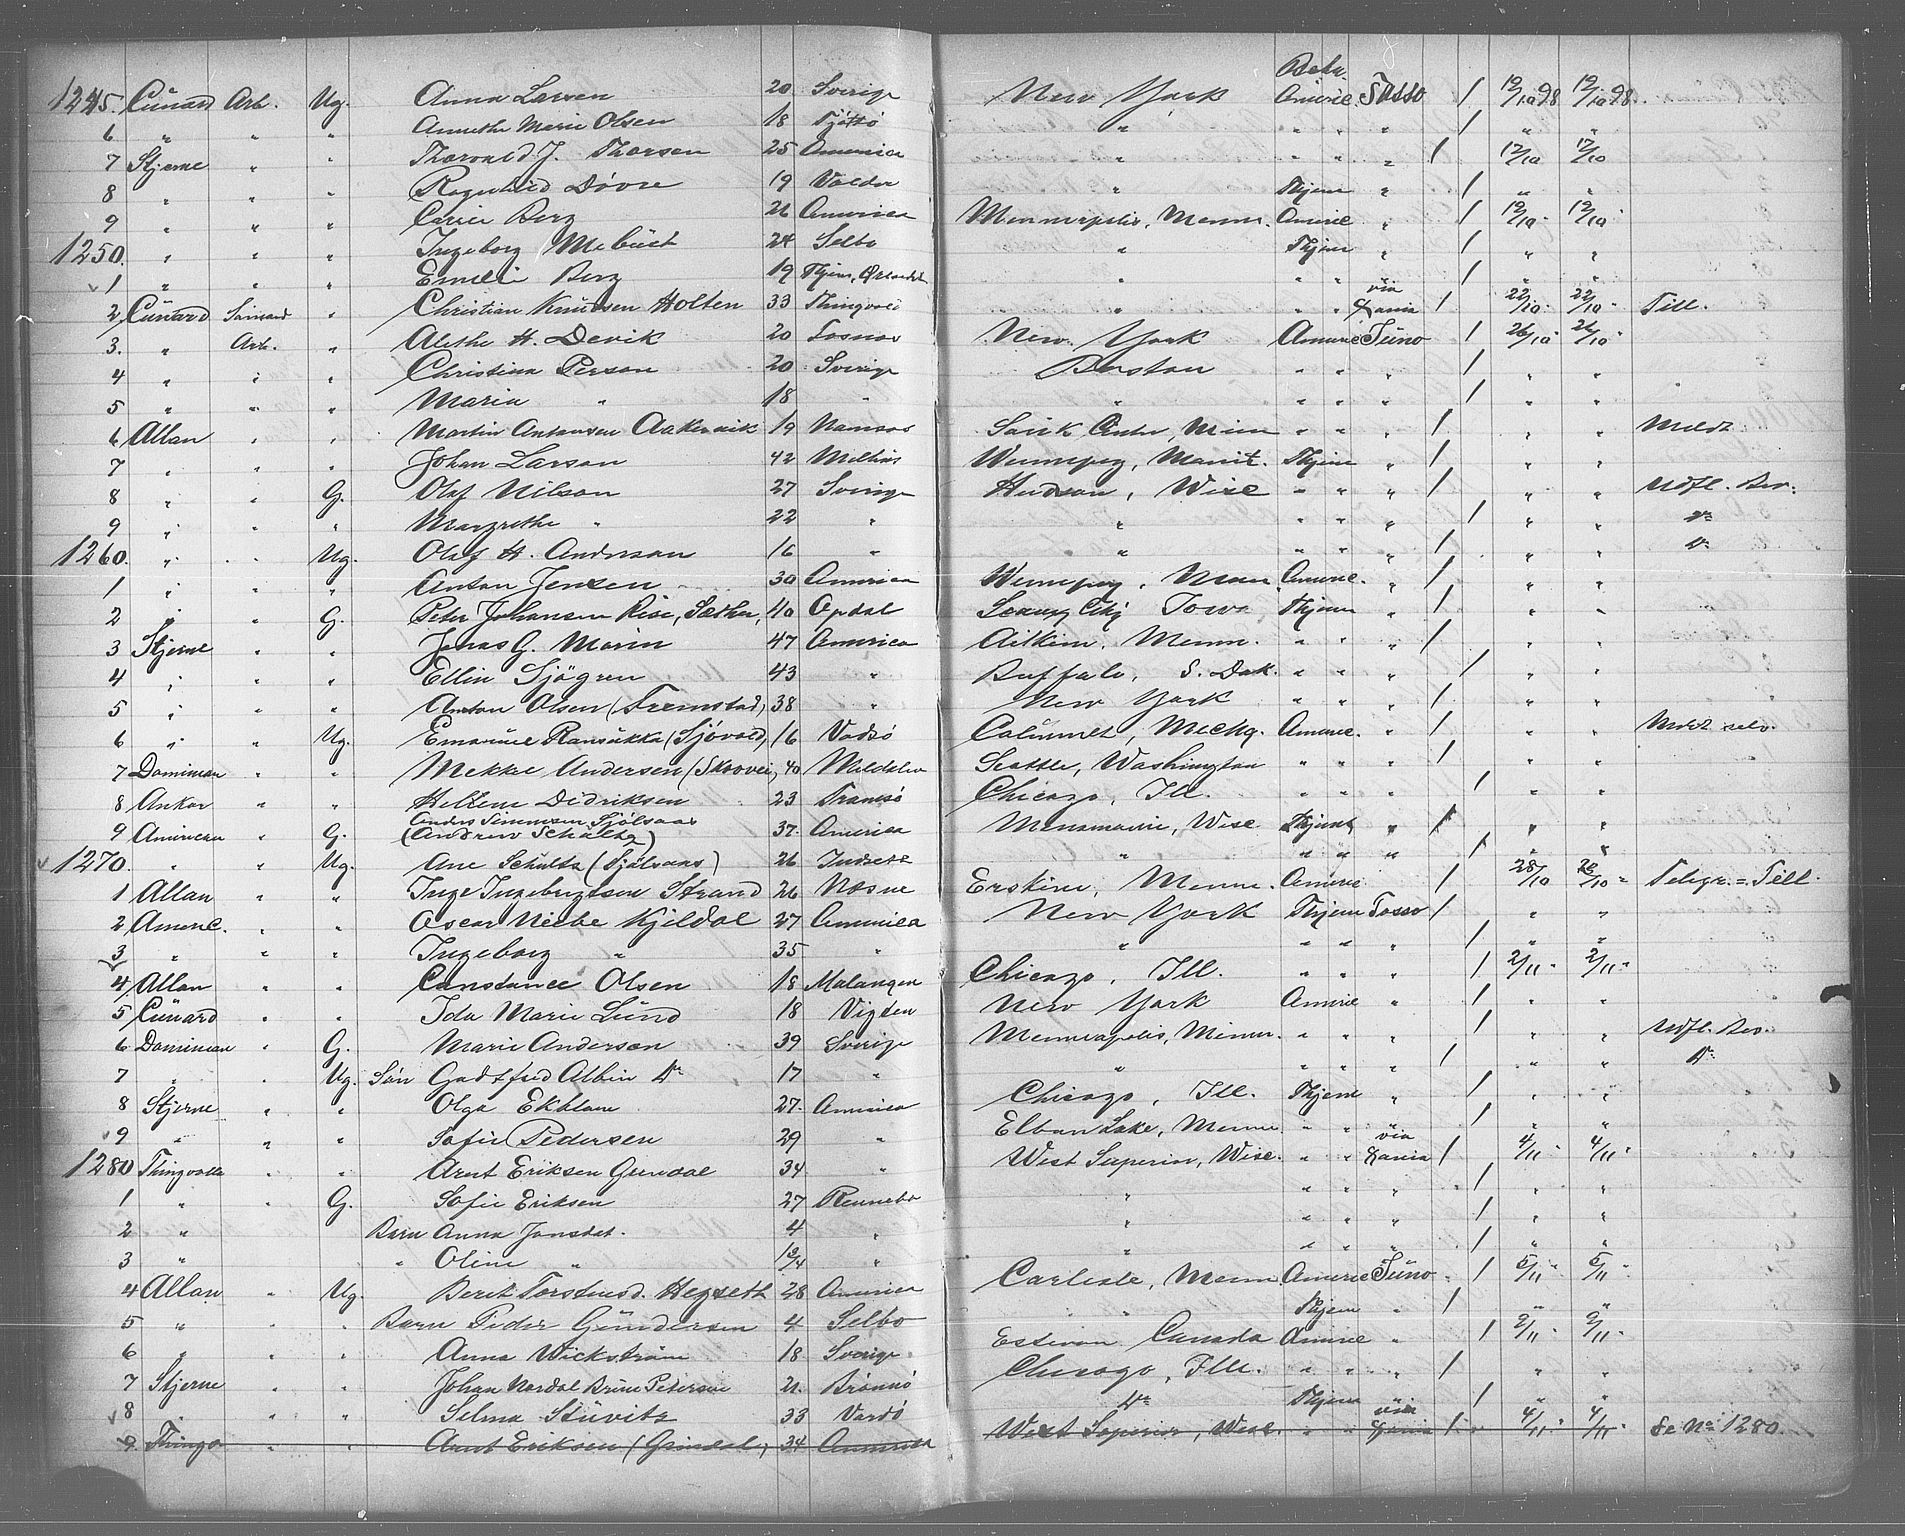 1245. Cünard Arb. Ug. Anna Larsen 20 Sverige New York Beta. Americ. Tasso / 12/10 98 12/10 98.
6 " " " Annethe Marie Olsen 18 Tjøttø " " " " / " "
7 Stjerne " " Thorvald J. Thorsen 25 America " " " " / 12/10 12/10
8 " " " Ragnhild Dovre 19 " Hjem " / " "
9 " " " Carrie Berg 26 America Minneapolis, Minn. Americ " / 12/10 " 12/10 "
1250. " " " Ingeborg Mebüst 24 Selbo " Hjem " / " "
1 " " " Emelie Berg 19 Hjem, " " " " / " "
2 Cünard Sømand " Christian Knudsen Holten 33 " " " via Xania / 22/10 " 22/10 " Till.
3. " Arb. " Alethe H. Devik 20 Fosnes New York Americ Juno / 26/10 " 26/10 "
4 " " " Christina Person 20 Sverige Boston " " " / " "
5 " " " Maria " 18 " " " " " / " "
6 Allan " " Martin Antonsen Aakervik 19 Namsos Sauk Centre, Minn " " " / " " Meldt
7 " " " Johan Larson 42 Melhus Winnepeg, Manit. Hjem " / " "
8 " " G. Olaf Nilson 27 Sverige Hudson, Wisc " " " / " " Udfl. Bev.
9 " " " Margrethe " 22 " " " " " / " " Do
1260. " " Ug. Olaf H. Anderson 16 " " " " " / " " Do
1 " " " Anton Jensen 30 America Winnepeg, Man Americ. " / " "
2 " " G. Peter Johansen Rise, Sæther, 40 Opdal City Iowa Hjem " / " "
3 Stjerne " " Jonas G. Morin 47 America Aitkin, Minn. " " " / " "
4 " " " Ellin Sjögren 43 " Buffalo, S. Dak. " " " / " "
5 " " " Anton Olsen (Fremstad) 38 " New York " " " / " "
6 " " Ug. Emanuel Ransükka (Sjövold) 16 Vadsö Calümet, Michg. Americ. " / " " Meldt selv.
7 Dominion " " Mekkel Andersen (Skoovei) 40 Maalselv Seattle, Washington " " " / " "
8 Ankor " " Hellene Didriksen 23 Tromsö Chicago, Ill. " " " / " "
9 American " G. Anders Simonsen Fjölsaas (Andrew Schultz) 37. America Menomonie, Wisc Hjemt " / " "
1270. " " Ug. Ane Schultz (Fjölsaas) 26 Indset " " " " / " "
1 Allan " " Inge Ingebrigtsen Strand 26 Næsne Erskine, Minn. Americ / 28/10 28/10 " Telegr. = Till.
2 Americ. " " Oscar Kjeldal 27 America New York Hjem Tasso / " "
3 " " " Ingeborg " 35 " " " " " / " "
4 Allan " " Constance Olsen 18 Malangen Chicago, Ill. " " " / 2/11 " 2/11 "
5 Cünard " " Ida Marie Lünd 18 Vigten New York Americ " / " "
6 Dominion " G. Marie Anderson 39 Sverige Minneapolis, Minn. " " " / " " Udfl. Bev.
7 " " Ug. Sön Godtfred Albin Do 17 " " " " " / " " Do
8 Stjerne " " Olga Ekblom 27. America Chicago, Ill. Hjem " / " "
9 " " " Sofie Pedersen 29 " Elbow Lake, Minn " " " / " "
1280 Thingvalla " " Arnt Eriksen Grindal 34 " West Superior, Wisc. " " via Xania / 4/11 " 4/11 "
1 " " G. Sofie Eriksen 27 Rennebo " " " " / " "
2 " Barn Anna Jonsdat. 4 " " " " " / " "
3 " " Oline " 10/4 " " " " " / " "
4 Allan " Ug. Beret Torstensd. Hegseth 28 America Carlisle, Minn. Americ Juno / 5/11 " 5/11 "
5 " " " Barn Peder Gündersen 4 Selbo " Hjem " / " "
6 " " " Anna Wickström 18 Sverige Estevan Canada Americ " / 2/11 " 2/11 "
7 Stjerne " " Johan Nordal Brün Petersen 21. Brönnö Chicago, Ill. " " " / " "
8 " " " Selma Stüvitz 33 Vardö Do Hjem " / " "
9 Thingv " " Arnt Eriksen (Grindal) 34 America West Superior, Wisc. " " via Xania / 4/11 " 4/11 " Se No 1280.